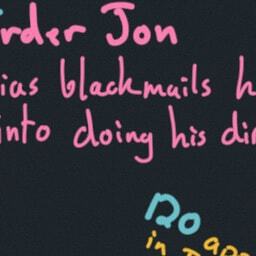 rder Jon
ias blackmails h
into doing his dir
Do
in